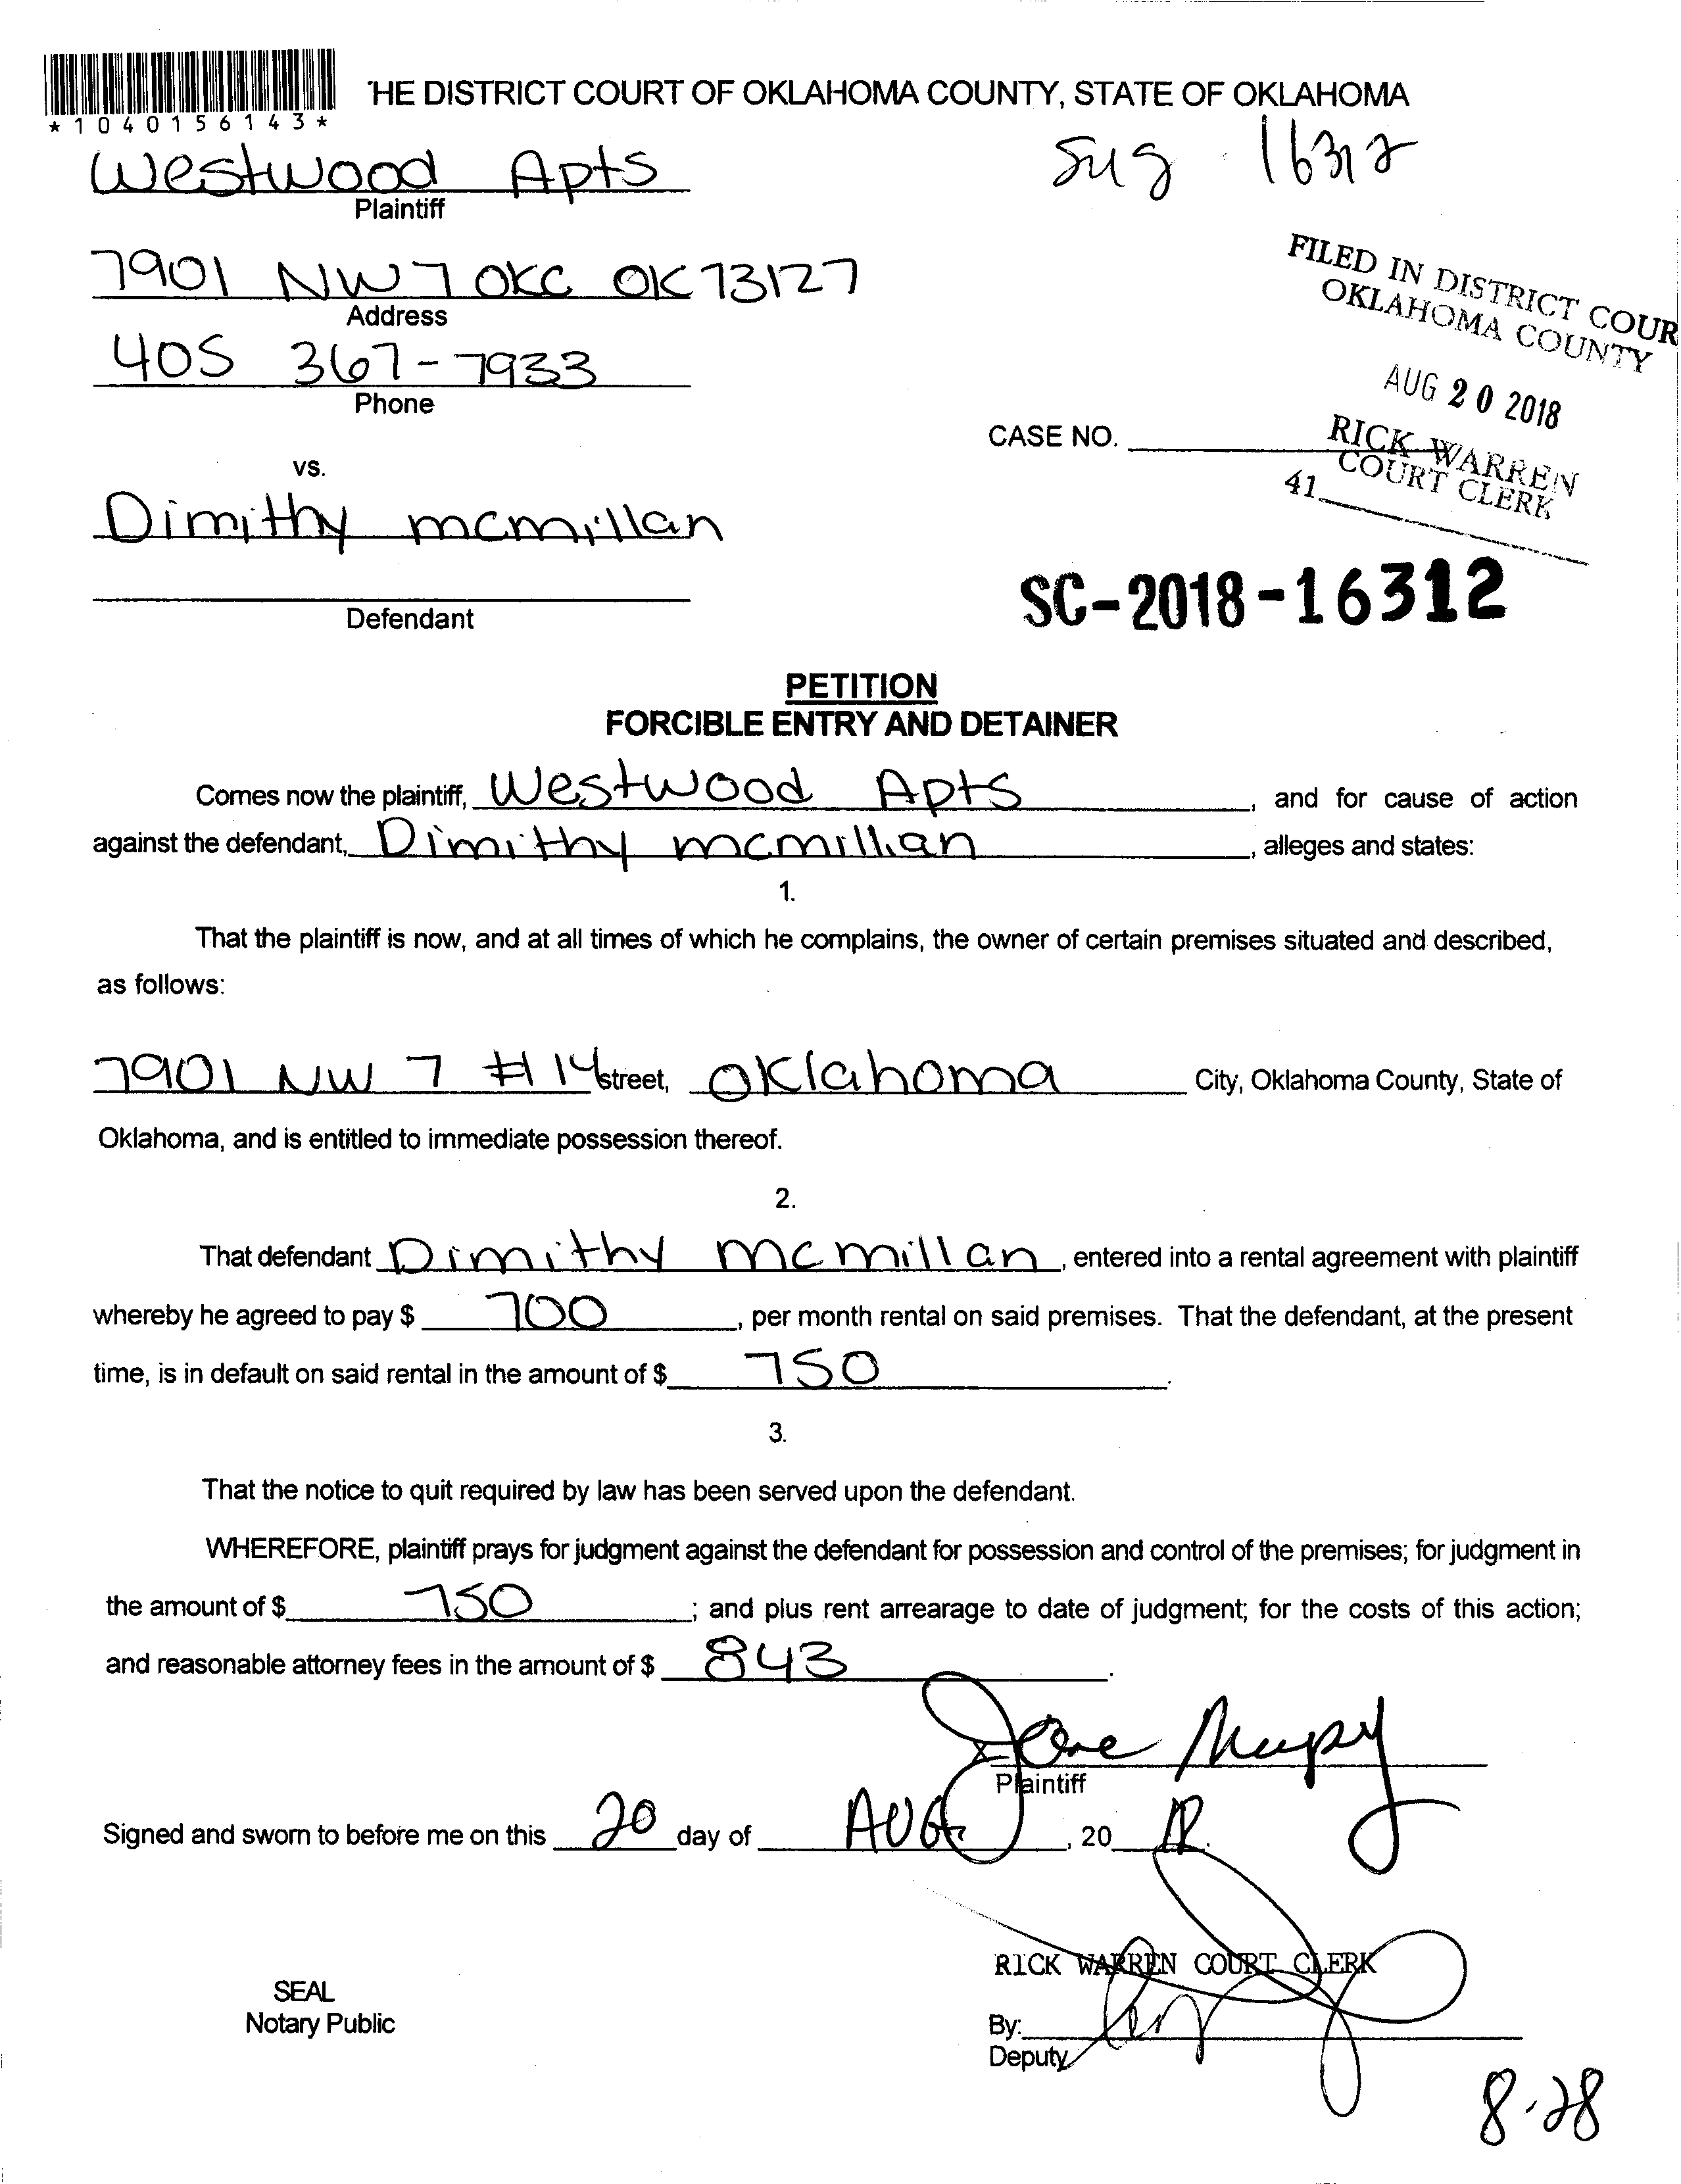 'HE DISTRICT COURT OF OKLAHOMA COUNTY, STATE OF OKLAHOMA
*1040156143*
Westwood Apts
Plaintiff
16312
7901 NW 7 OKC OK 73127
Address
FILED IN DISTRICT COUR
OKLAHOMA COUNTY
405 367-7933
Phone
AUG 20 2018
CASE NO.
RICK WARREN
COURT CLERK
41
vs.
Dimithy mcmillan
Defendant
SC-2018-16312
PETITION
FORCIBLE ENTRY AND DETAINER
Comes now the plaintiff, Westwood Apts, and for cause of action
against the defendant, Dimithy mcmillian, alleges and states:
1.
That the plaintiff is now, and at all times of which he complains, the owner of certain premises situated and described,
as follows:
7901 NW 7 #14 street, Oklahoma City, Oklahoma County, State of
Oklahoma, and is entitled to immediate possession thereof.
2.
That defendant Dimithy mcmillan, entered into a rental agreement with plaintiff
whereby he agreed to pay $ 700, per month rental on said premises. That the defendant, at the present
time, is in default on said rental in the amount of $ 750.
3.
That the notice to quit required by law has been served upon the defendant.
WHEREFORE, plaintiff prays for judgment against the defendant for possession and control of the premises; for judgment in
the amount of $ 750; and plus rent arrearage to date of judgment; for the costs of this action;
and reasonable attorney fees in the amount of $ 843.
X
Plaintiff
Signed and sworn to before me on this 20 day of AUG, 20 18.
RICK WARREN COURT CLERK
SEAL
Notary Public
By:
Deputy
8-28